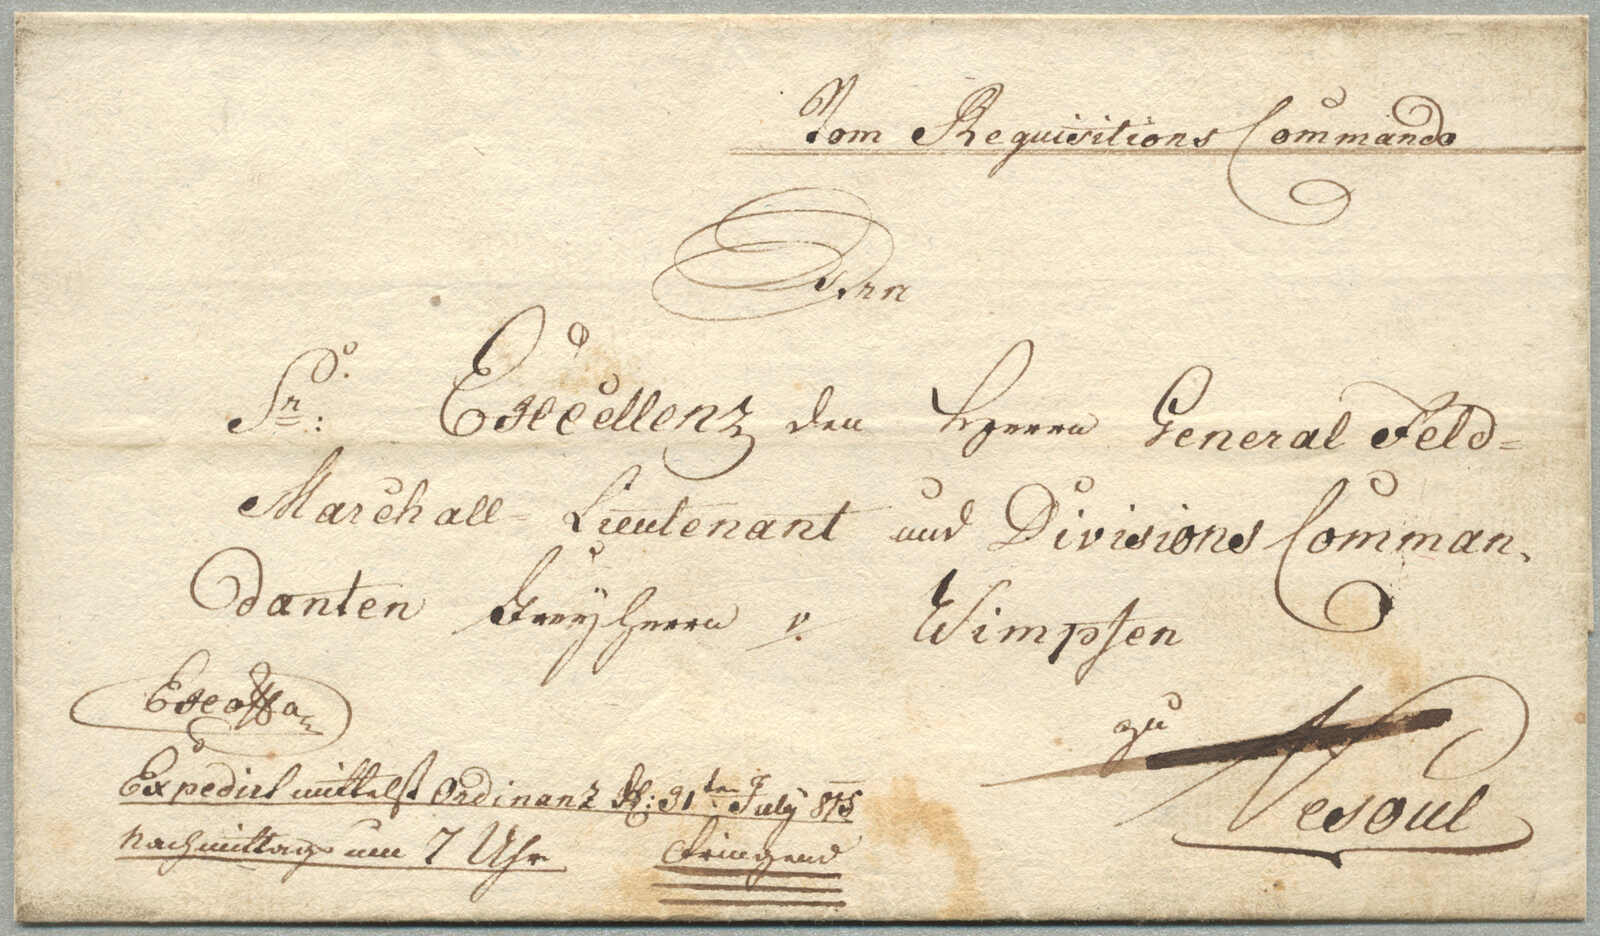 Vom Requisitions Commando
Den
Sr: Excellenz den Herrn General Feld=
Marchall=Lieutenant und Divisions Comman-
danten Freyherrn v. Wimpfen
zu
Vesoul
Ex offo
Expedirt mittelst Ordinanz d: 31ten July 815
Nachmittag um 7 Uhr dringend